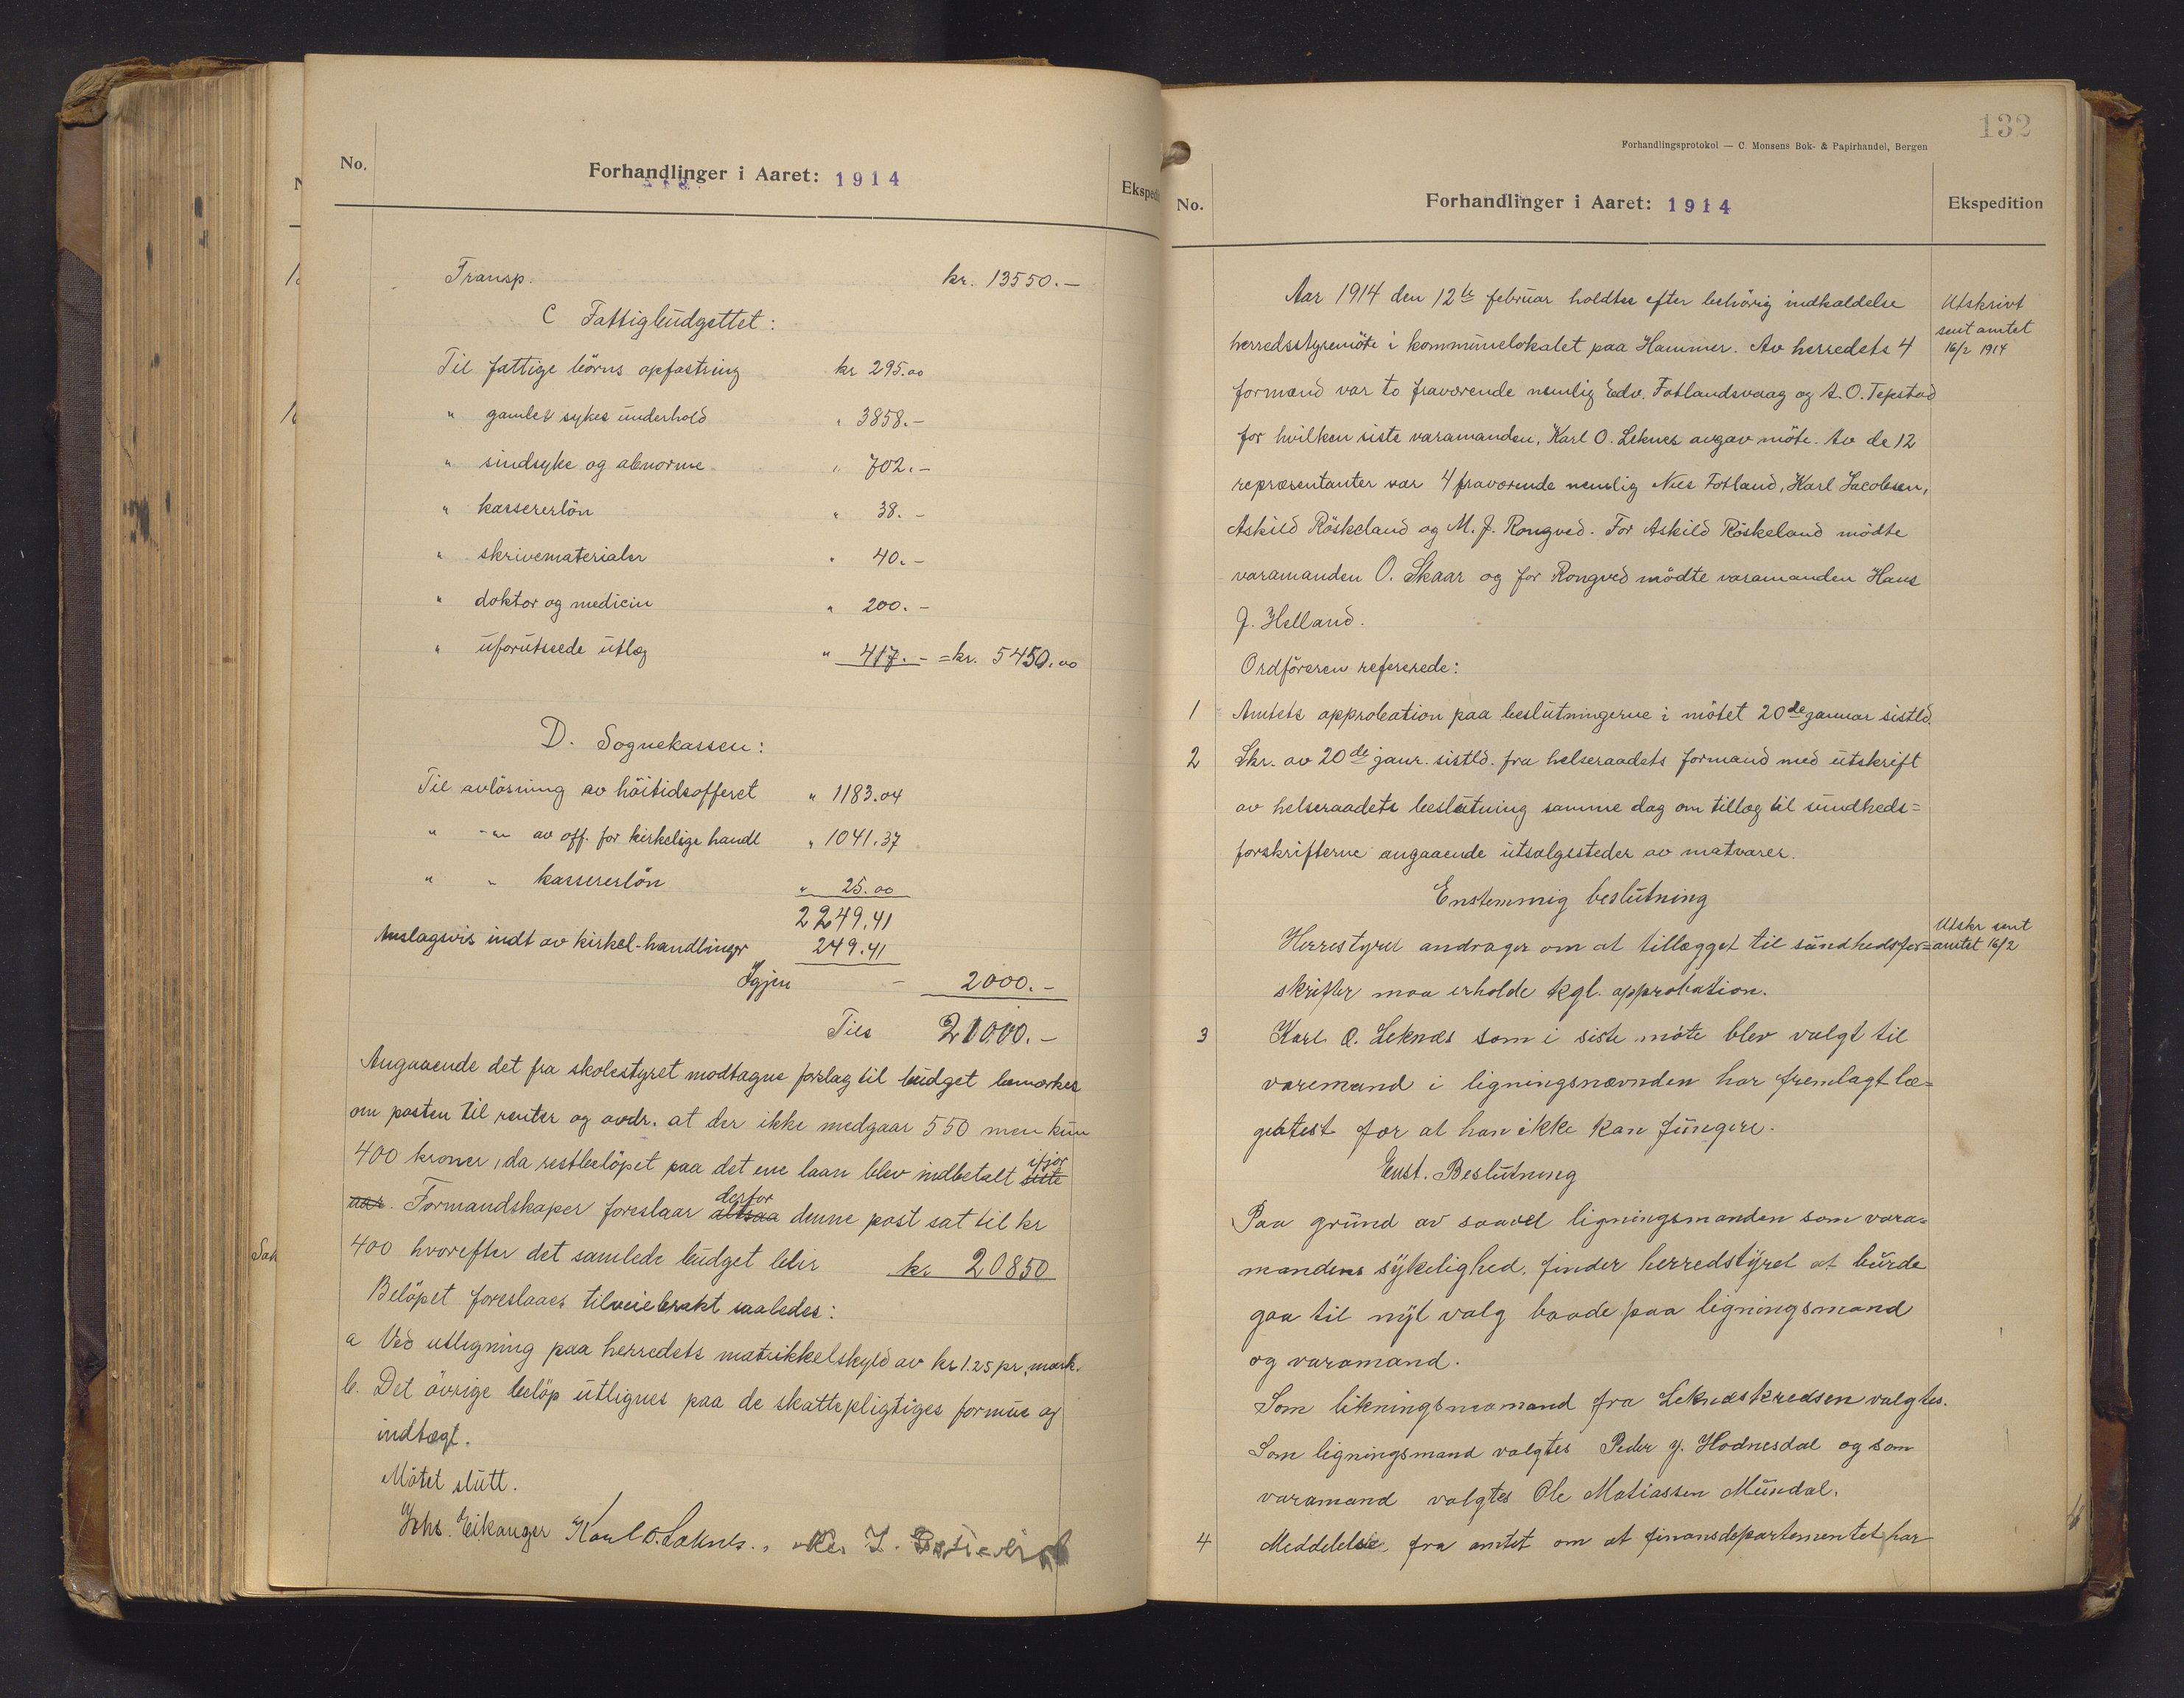 No.
Forhandlinger i Aaret: 1914
Ekspedi
Transp. kr. 13550.—
C Fattigbudgettet:
Til fattige börns opfostring kr 295.00
" gamles sykes underhold " 3858.—
" sindsyke og abnorme " 702.—
" kassererlön " 38.—
" skrivematerialer " 40.—
" doktor og medicin " 200.—
" uforutseede utlæg " 417.— = kr. 5450.00
D. Sognekassen:
Til avlösning av höitidsofferet " 1183.04
" -"- av off. for kirkelige handl " 1041.37
" " kassererlön " 25.00
2249.41
Anslagsvis indt av kirkel-handlinger 249.41
Igjen — 2000.—
Tils 21000.—
Angaaende det fra skolestyret modtagne forslag til budget bemerkes
om posten til renter og avdr. at der ikke medgaar 550 men kun
400 kroner, da restbelöpet paa det ene laan blev indbetalt siste ifjor
aar. Formandskapet foreslaar altsaa derfor denne post sat til kr
400 hvorefter det samlede budget blir kr 20850
Belöpet foreslaaes tilveiebrakt saaledes:
a Ved utligning paa herredets matrikkelskyld av kr 1.25 pr. mark.
b. Det övrige belöp utlignes paa de skattepligtiges formue og
indtægt.
Mötet slutt.
Johs. Eikanger Karl O. Leknes.
132
Forhandlingsprotokol — C. Monsens Bok- & Papirhandel, Bergen
No.
Forhandlinger i Aaret: 1914
Ekspedition
Aar 1914 den 12te februar holdtes efter behörig indkaldelse
Utskrivt
sent amtet
16/2 1914
herredsstyremöte i kommunelokalet paa Hammer. Av herredets 4
formænd var to fraværende nemlig Edv. Fotlandsvaag og A. O. Tepstad
for hvilken siste varamanden, Karl O. Leknes avgav möte. Av de 12
repræsentanter var 4 fraværende nemlig Nils Fotland, Karl Jacobsen,
Askild Röskeland og M. J. Rongved. For Askild Röskeland mödte
varamanden O. Skaar og for Rongved mödte varamanden Hans
J. Helland.
Ordföreren refererede:
1 Amtets approbation paa beslutningerne i mötet 20de januar sistld.
2 Skr. av 20de janr. sistld. fra helseraadets formand med utskrift
av helseraadets beslutning samme dag om tillæg til sundheds=
forskrifterne angaaende utsalgssteder av matvarer.
Enstemmig beslutning
Herrestyret andrager om at tillægget til sundhedsfor=
Utskr sent
amtet 16/2
skrifter maa erholde kgl. approbation.
3 Karl O. Leknes som i siste möte blev valgt til
varemand i ligningsnævnden har fremlagt læ=
geatest for at han ikke kan fungere.
Enst. Beslutning
Paa grund av saavel ligningsmanden som vara=
mandens sykelighed, finder herredstyret at burde
gaa til nyt valg baade paa ligningsmand
og varamand.
Som likningsmamand fra Leknæskredsen valgtes.
Som ligningsmand valgtes Peder J. Hodnesdal og som
varamand valgtes Ole Matiassen Mundal.
4 Meddelelse fra amtet om at finansdepartementet har